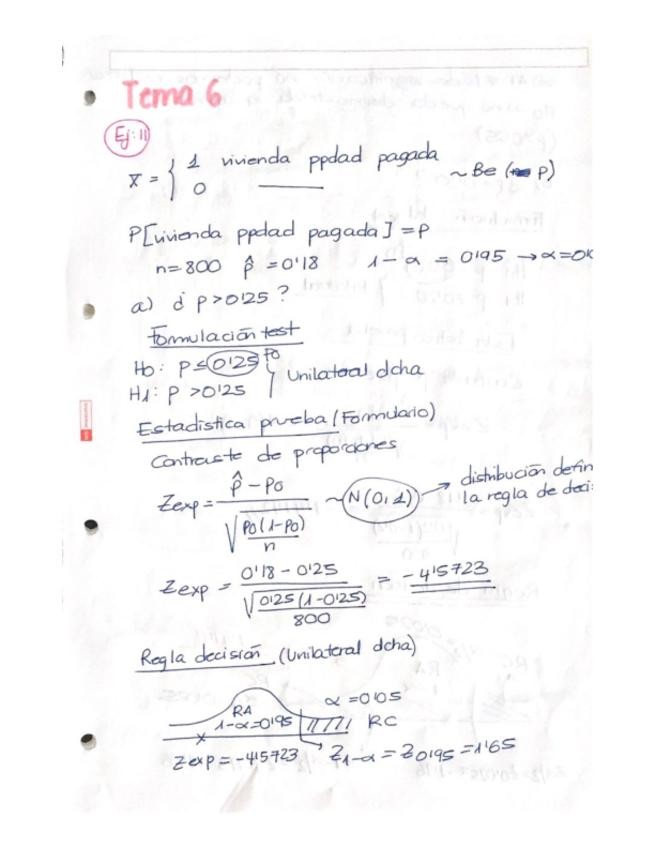 Tema 6
Ej: 11
X = { 1 vivienda ppdad pagada
0 ——— ~ Be (p)
P[vivienda ppdad pagada] = p
n=800 p̂ = 0'18 1-α = 0'95 → α=0'0
a) ¿ p > 0'25 ?
Formulación test
H0: p ≤ 0'25 p0
H1: p > 0'25 } Unilateral dcha
Estadística prueba (Formulario)
Contraste de proporciones
Zexp = (p̂ - p0) / √(p0(1-p0)/n) ~ N(0,1) → distribución defin
la regla de deci
Zexp = (0'18 - 0'25) / √(0'25(1-0'25)/800) = -4'5723
Regla decisión (Unilateral dcha)
α = 0'05
RA
1-α=0'95 RC
Zexp = -4'5723 Z1-α = Z0'95 = 1'65